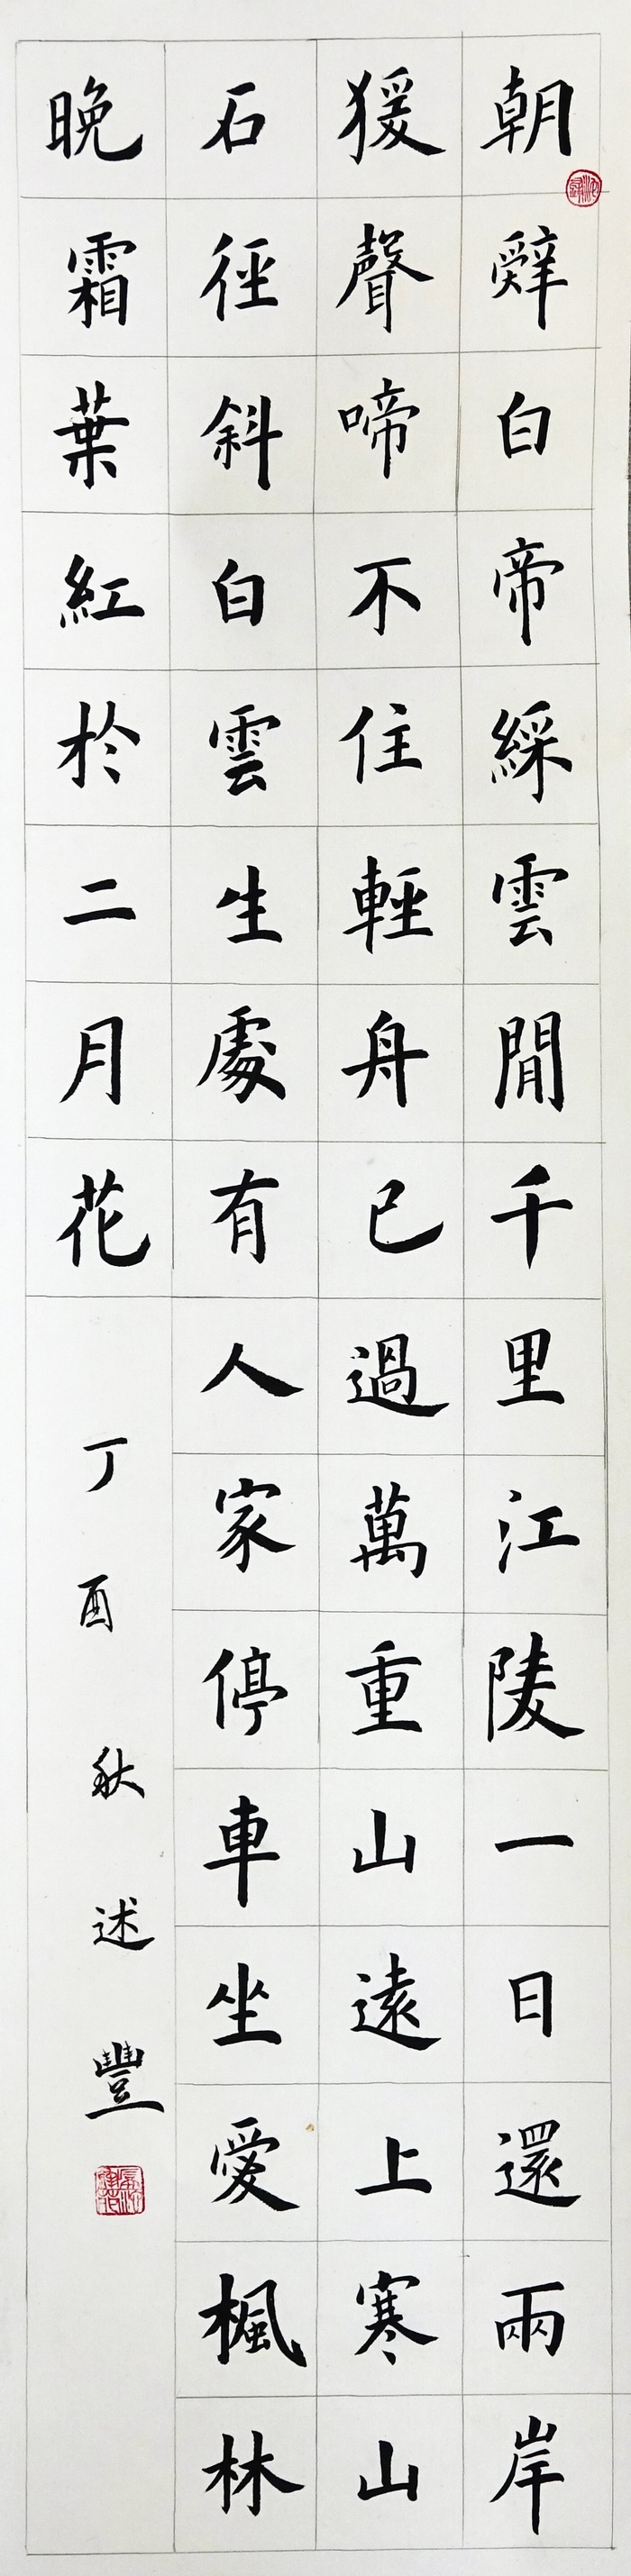 朝辤白帝綵雲閒千里江陵一日還兩岸
猨聲啼不住輕舟已過萬重山遠上寒山
石徑斜白雲生處有人家停車坐愛楓林
晚霜葉紅於二月花
丁酉秋述豐